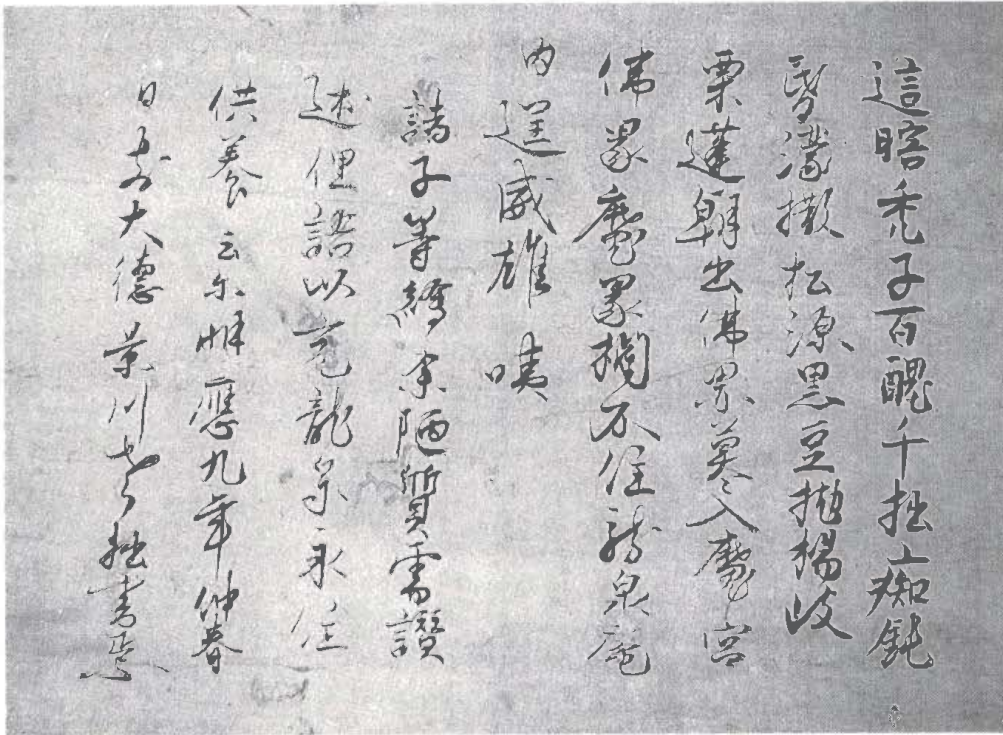 這瞎禿子百醜千拙上痴鈍
昏濛撒松源黒豆抛楊岐
栗蓬朝出佛界暮入魔宮
佛界魔界攔不住龍泉庵
内逞威雄咦
諸子等繪余陋質需讃
述俚語以充龍泉永住
供養云尓明應九年仲春
日前大德景川老拙書焉